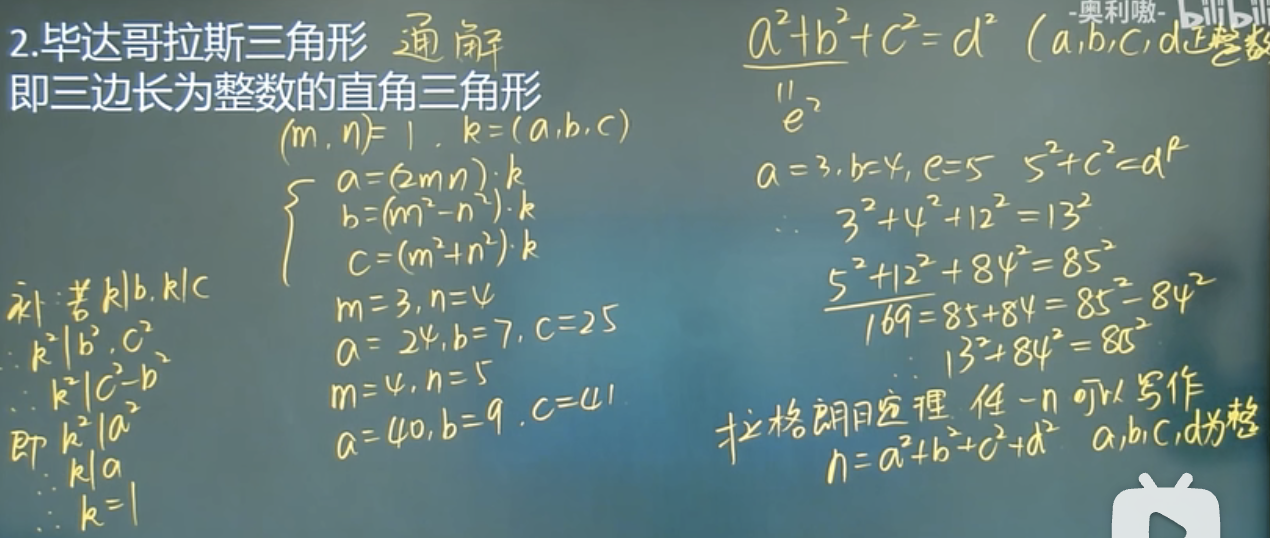 2.毕达哥拉斯三角形 通解
即三边长为整数的直角三角形
(m,n)=1. k=(a,b,c)
a=(2mn)·k
b=(m²-n²)·k
c=(m²+n²)·k
m=3,n=4
a=24,b=7,c=25
m=4,n=5
a=40,b=9.c=41
补:若k|b.k|c
∴k²|b².c²
∴k²|c²-b²
即k²|a²
∴k|a
∴k=1
-奥利嗷- bilibili
a²+b²+c²=d² (a,b,c,d正整数
"
e²
a=3,b=4,e=5 5²+c²=d²
∴ 3²+4²+12²=13²
5²+12²+84²=85²
169=85+84=85²-84²
∴13²+84²=85²
拉格朗日定理 任一n可以写作
n=a²+b²+c²+d² a,b,c,d为整